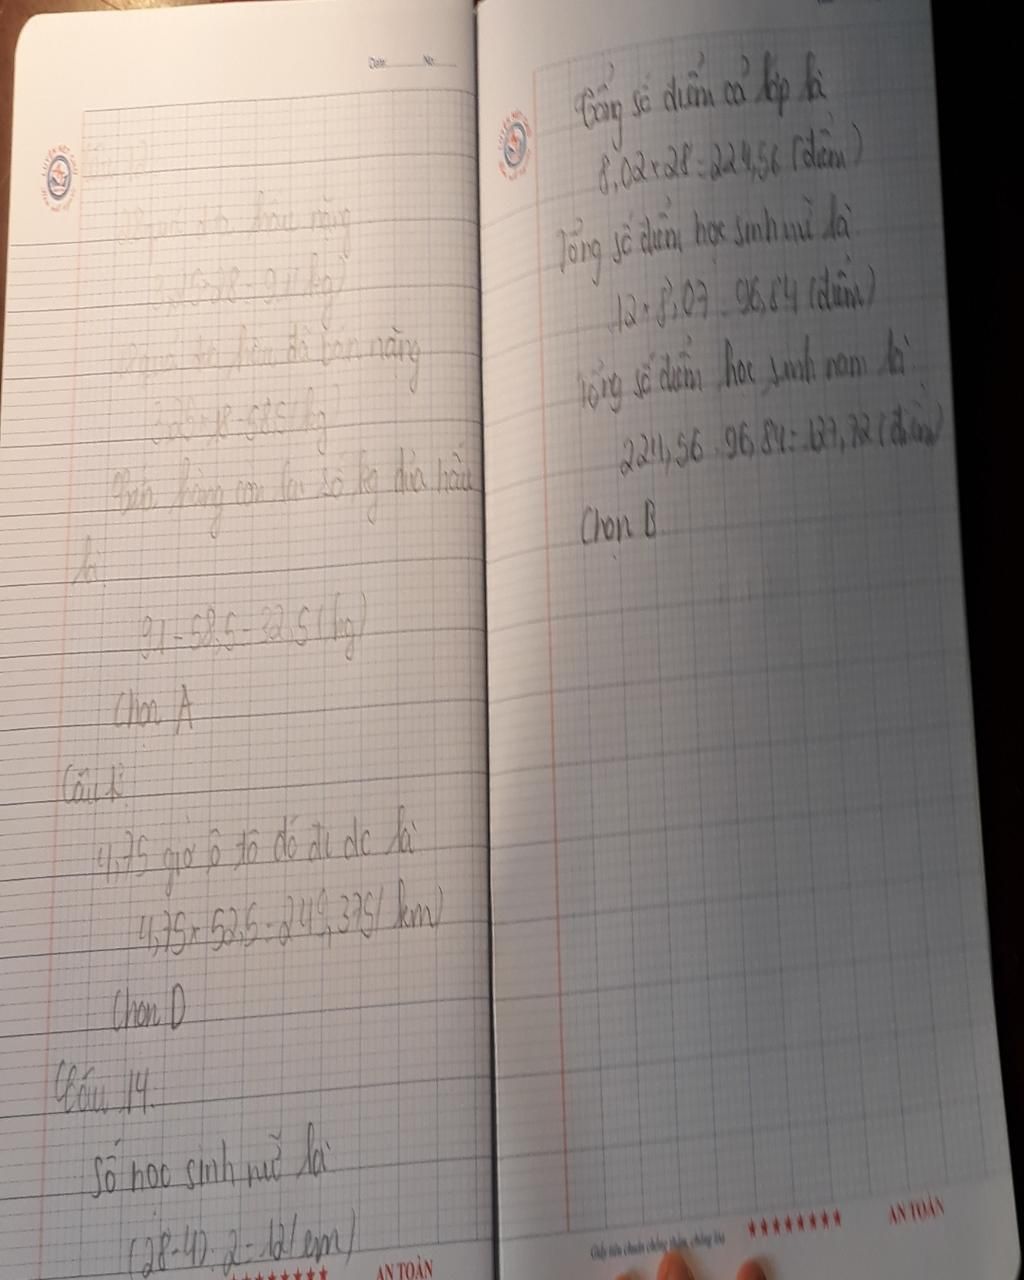 Date No
quả dưa hấu nặng
3,25×28=91(kg)
quả dưa hấu đã bán nặng
3,25×18=58,5(kg
hàng còn lại số kg dưa hấu
là
91-58,5=32,5(kg)
Chọn A
Câu
4,75 giờ ô tô đó đi dc là
4,75×52,5=249,375(km)
Chọn D
Câu 14.
Số học sinh nữ là
(28-4):2=12(em)
AN TOÀN
Tổng số điểm cả lớp là
8,02×28=224,56(điểm)
Tổng số điểm học sinh nữ là
12×8,07=96,84(điểm)
Tổng số điểm học sinh nam là
224,56-96,84=127,72(điểm)
Chọn B
Giấy tiêu chuẩn chống thấm, chống lóa
AN TOÀN